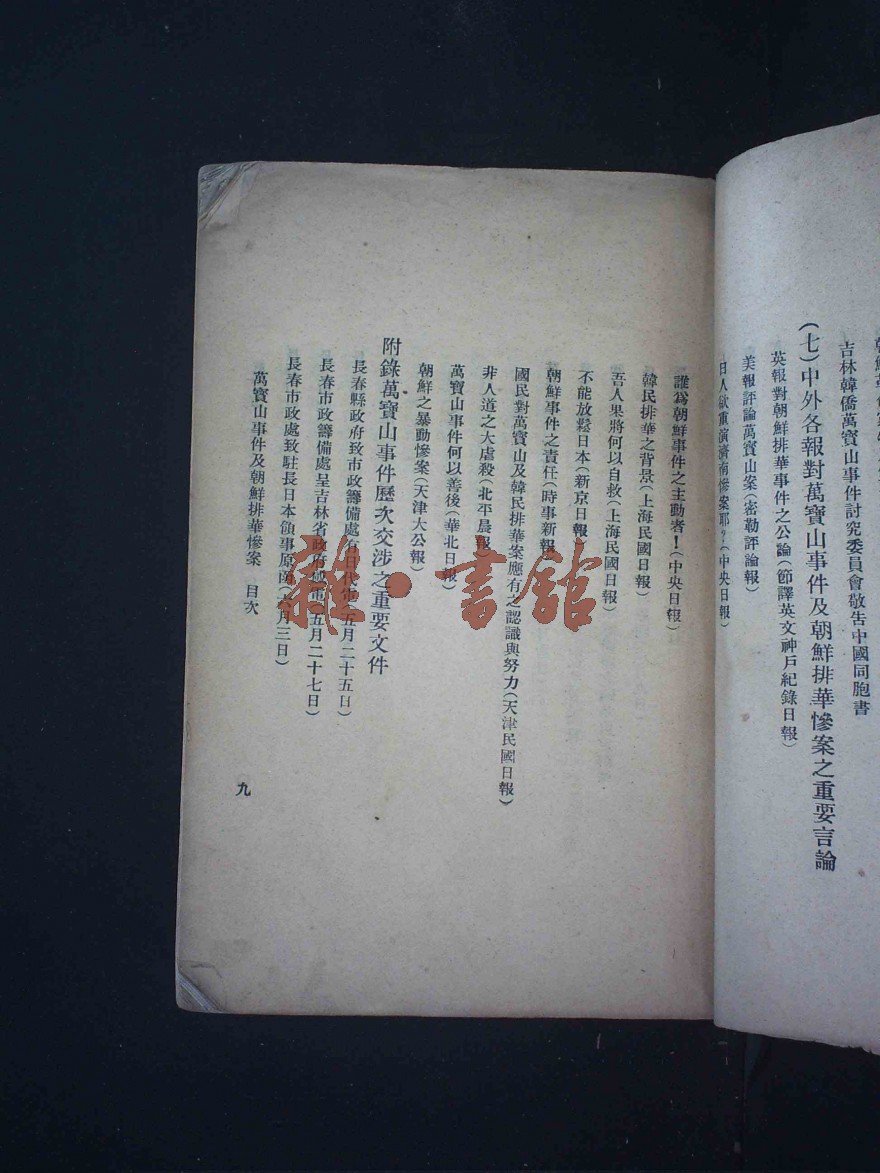 吉林韓僑萬寶山事件討究委員會敬告中國同胞書
(七)中外各報對萬寶山事件及朝鮮排華慘案之重要言論
英報對朝鮮排華事件之公論(節譯英文神戶紀錄日報)
美報評論萬寶山案(密勒評論報)
日人欲重演濟南慘案耶?(中央日報)
誰爲朝鮮事件之主動者!(中央日報)
韓民排華之背景(上海民國日報)
吾人果將何以自救(上海民國日報)
不能放鬆日本(新京日報)
朝鮮事件之責任(時事新報)
國民對萬寶山及韓民排華案應有之認識與努力(天津民國日報)
非人道之大虐殺(北平晨報)
萬寶山事件何以善後(華北日報)
朝鮮之暴動慘案(天津大公報)
附錄萬寶山事件歷次交涉之重要文件
長春縣政府致市政籌備處有日代電(五月二十五日)
長春市政籌備處呈吉林省政府 電(五月二十七日)
長春市政處致駐長日本領事原函(六月三日)
萬寶山事件及朝鮮排華慘案 目次
九
雜·書館